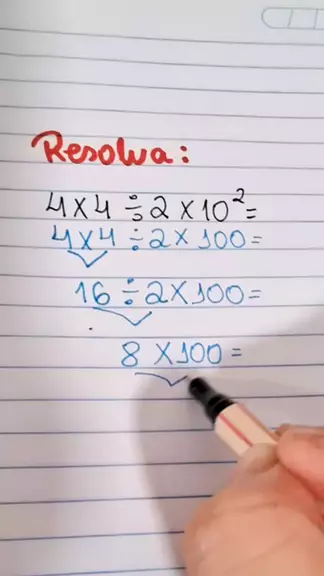 Resolva:
4×4÷2×10²=
4×4÷2×100=
16÷2×100=
8×100=